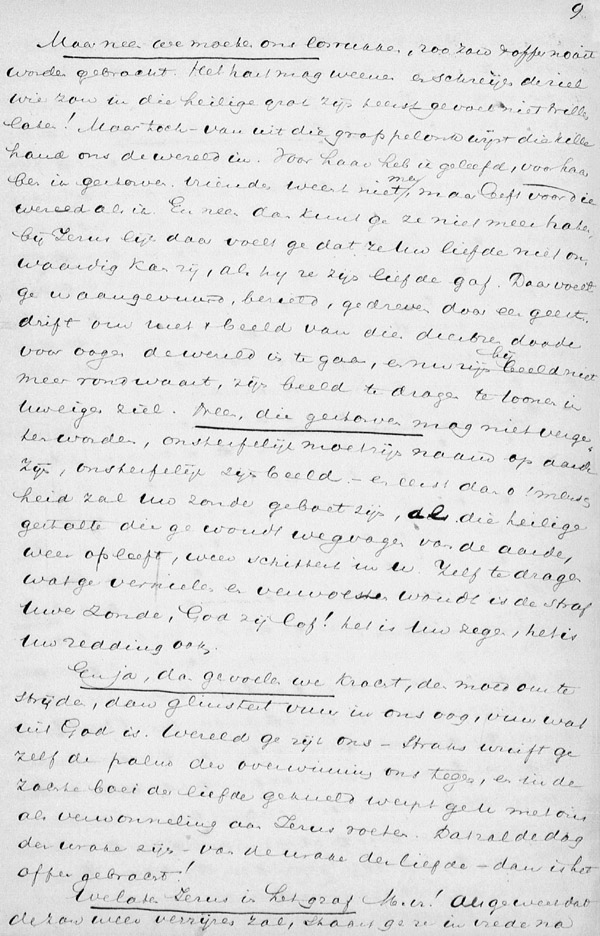 9
Maar neen we moeten ons losrukken, zoo zou 't offer nooit
worden gebracht. Het hart mag weenen en schreijen de ziel
wie zou in die heilige graf zijn geest niet willen
laten! Maar toch – van uit die grafspelonk wijst die kille
hand ons de wereld in. Voor haar heb ik geleefd, voor haar
ben ik gestorven. Vrienden weent niet meer, maar leeft voor die
wereld als ik. En neen dan kunt ge ze niet meer haten,
bij Jezus lijk daar voelt ge dat ze Uw liefde niet on-
waardig kan zij, als hij ze zijn liefde gaf. Daar voelt
ge u aangevuurd, bezield, gedreven door een geest-
drift om met 't beeld van die dierbre doode
voor oogen de wereld in te gaan, en nu hij zijn beeld niet
meer rondwaart, zijn beeld te dragen te toonen in
Uw eigen ziel. Neen, die gestorven mag niet verge-
ten worden, onsterfelijk moet zijn naam op aarde
zijn, onsterfelijk zijn beeld – en eerst dan o! mensch
heid zal uw zonde geboet zijn, als die heilige
gestalte die ge woudt wegvagen van de aarde,
weer opleeft, weer schittert in u. Zelf te dragen
wat ge vernielen en verwoesten woudt is de straf
Uwer zonde, God zij lof! het is Uw zegen, het is
Uw redding ook.
En ja, dan gevoelen we kracht, den moed om te
strijden, dan glinstert vuur in ons oog, vuur wat
uit God is. Wereld ge zijt ons – straks wuift ge
zelf de palm der overwinning ons tegen, en in de
zachte boei der liefde gekneld werpt ge U met ons
als verwonneling aan Jezus voeten. Dat zal de dag
der wrake zijn – van de wrake der liefde – dan is het
offer gebracht!
Welaan Jezus in het graf M.H.! Als ge weet dat
de zon weer verrijzen zal, staart ge ze in vrede na